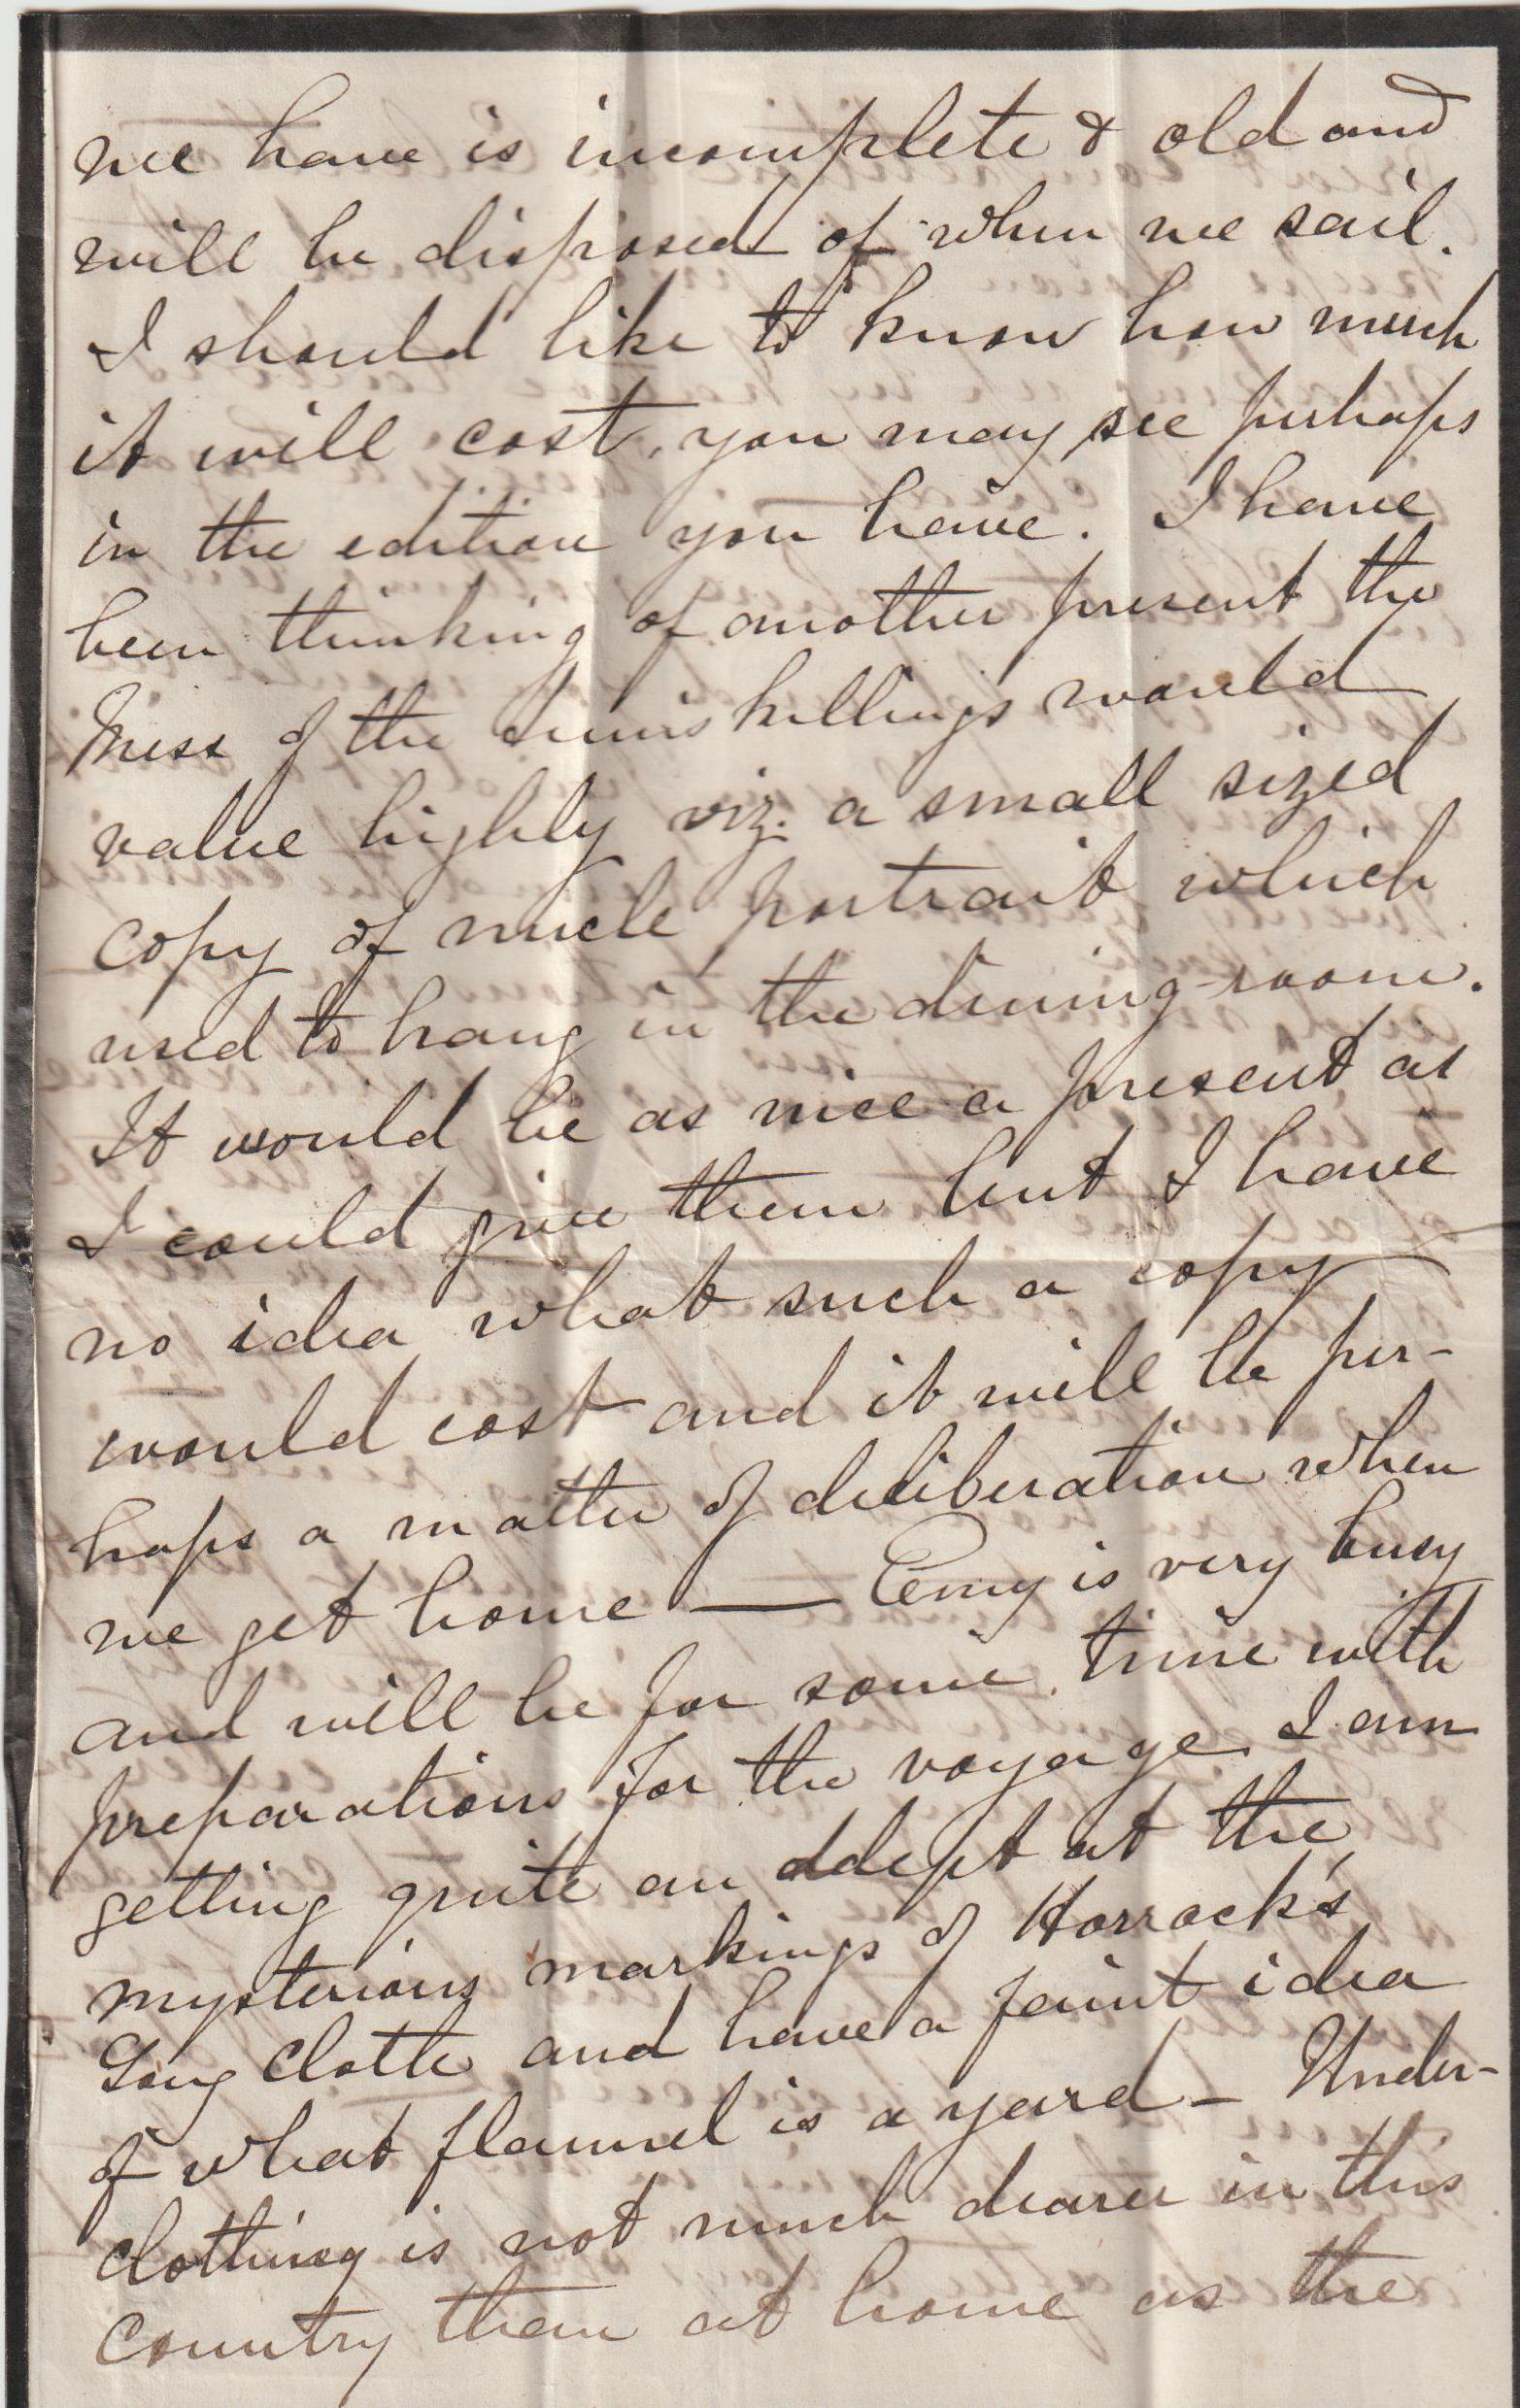 we have is incomplete & old and
will be disposed of when we sail.
I should like to know how much
it will cost, you may see perhaps
in the edition you have. I have
been thinking of another present the
Mess of the Inniskillings would
value highly viz. a small sized
copy of uncle portrait which
used to hang in the dining-room.
It would be as nice a present as
I could give them but I have
no idea what such a copy
would cost and it will be per-
haps a matter of deliberation when
we get home — Emy is very busy
and will be for some time with
preparations for the voyage. I am
getting quite an adept at the
mysterious markings of Horrock's
Long Cloth and have a faint idea
of what flannel is a yard - Under-
clothing is not much dearer in this
country than at home as the